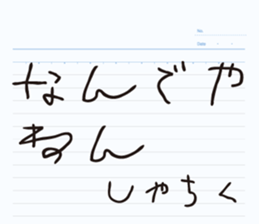 No.
Date ・ ・
なんでや
ねん
しゃちく